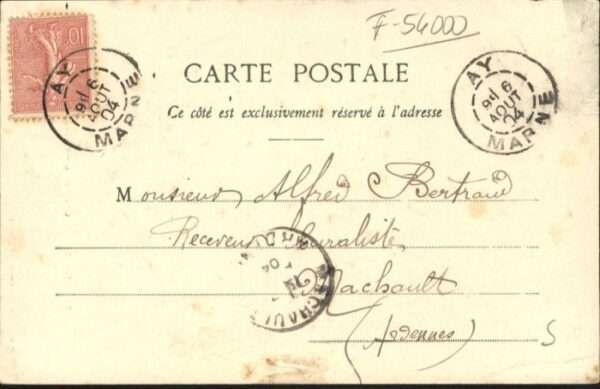 F-54000
10
AY
9H 6
AOUT
04
MARNE
CARTE POSTALE
Ce côté est exclusivement réservé à l'adresse
AY
9H 6
AOUT
04
MARNE
Monsieur Alfred Bertrand
Receveur Buraliste
Machault
(Ardennes)
S
MACHAULT